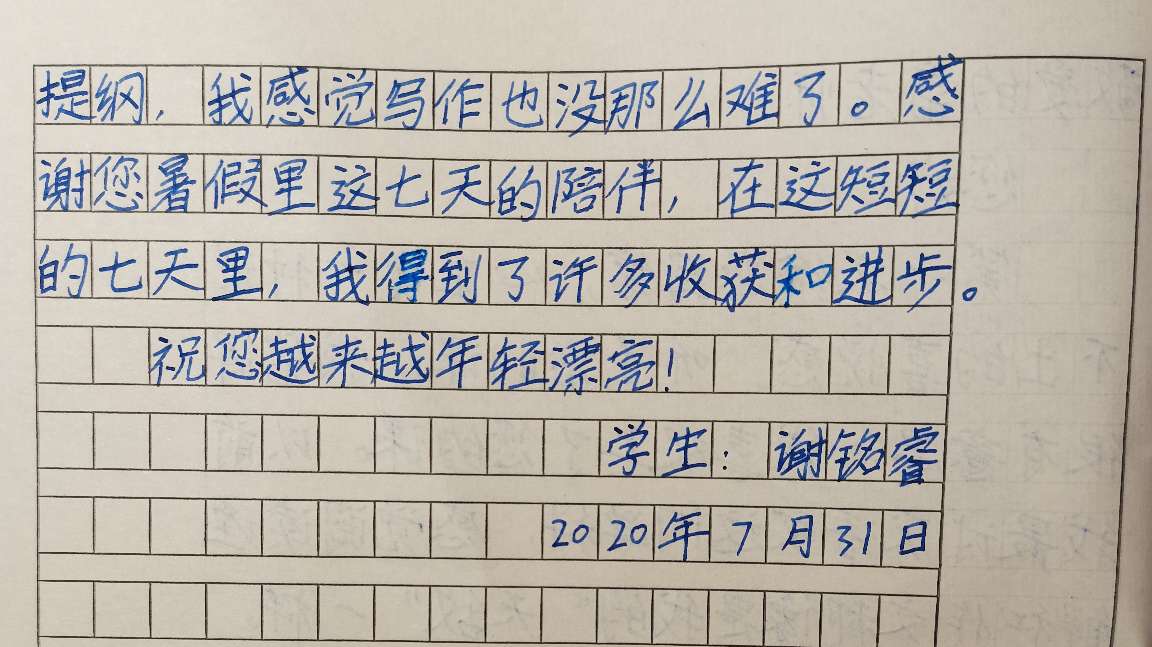 提纲，我感觉写作也没那么难了。感
谢您暑假里这七天的陪伴，在这短短
的七天里，我得到了许多收获和进步。
祝您越来越年轻漂亮！
学生：谢铭睿
2020年7月31日